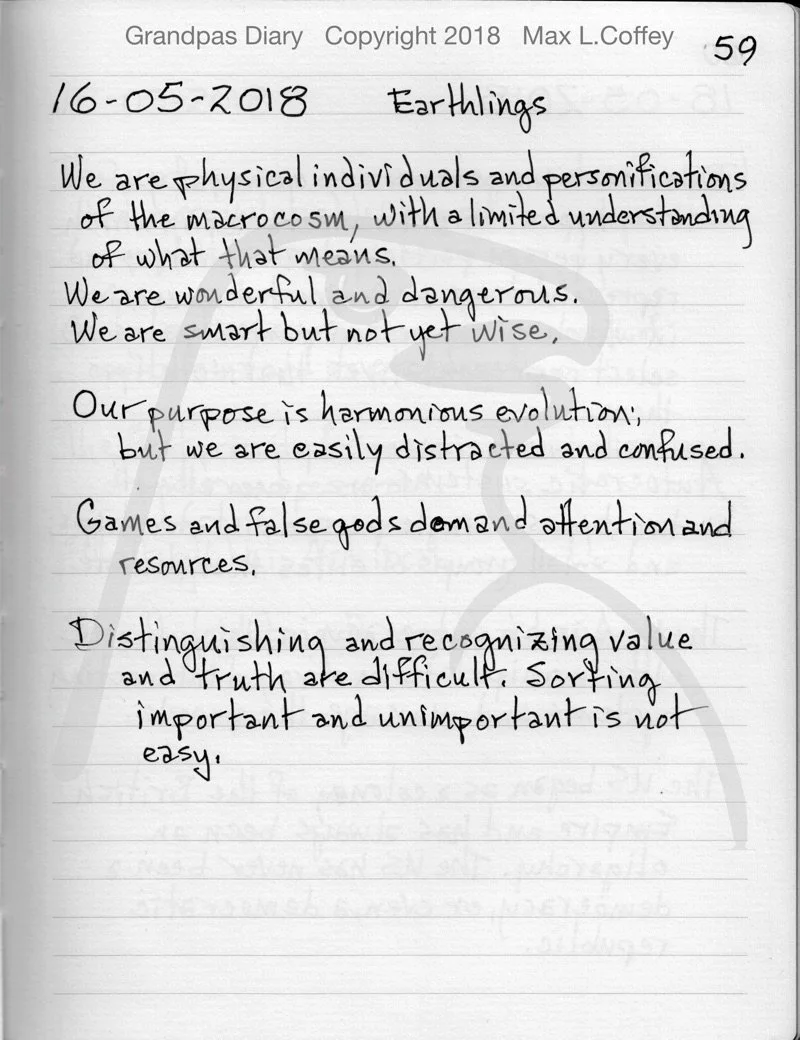 Grandpas Diary Copyright 2018 Max L.Coffey
59
16-05-2018 Earthlings
We are physical individuals and personifications
of the macrocosm, with a limited understanding
of what that means.
We are wonderful and dangerous.
We are smart but not yet wise.
Our purpose is harmonious evolution;
but we are easily distracted and confused.
Games and false gods demand attention and
resources.
Distinguishing and recognizing value
and truth are difficult. Sorting
important and unimportant is not
easy.